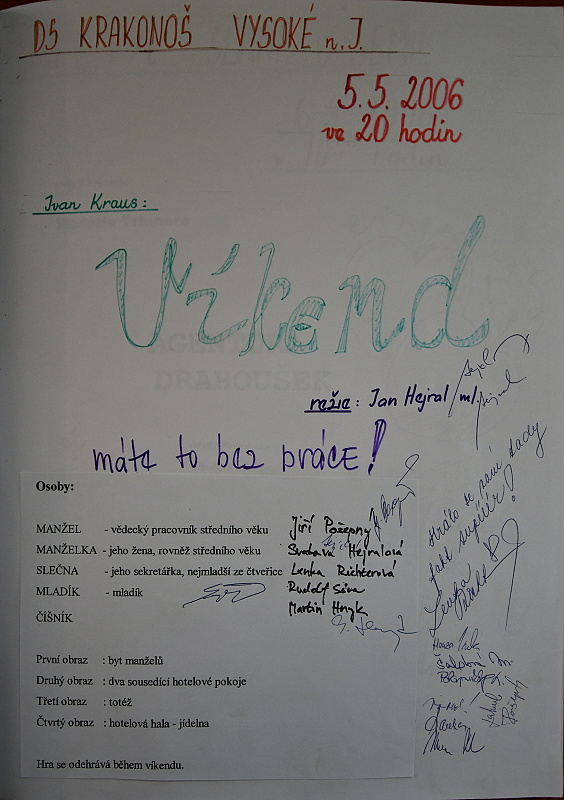 DS KRAKONOŠ VYSOKÉ n. J.
5. 5. 2006
ve 20 hodin
Ivan Kraus:
Víkend
režie: Jan Hejral ml.
máte to bez práce!
Osoby:
MANŽEL - vědecký pracovník středního věku Jiří Pošepný
MANŽELKA - jeho žena, rovněž středního věku Svatava Hejralová
SLEČNA - jeho sekretářka, nejmladší ze čtveřice Lenka Richterová
MLADÍK - mladík Rudolf
ČÍŠNÍK Martin
První obraz : byt manželů
Druhý obraz : dva sousedící hotelové pokoje
Třetí obraz : totéž
Čtvrtý obraz : hotelová hala - jídelna
Hra se odehrává během víkendu.
Hrálo se nám tady
fakt
Lenka